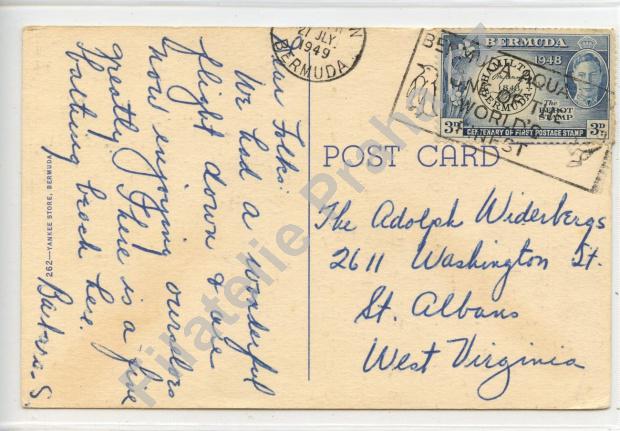 N
21 JLY
1949
BERMUDA
BERMUDA
1948
HAMILTON
1848
BERMUDA
The
PEROT
STAMP
3D
3D
CENTENARY OF FIRST POSTAGE STAMP
AQUA
ONE OF THE
WORLD'S
FINEST
POST CARD
Dear Folks:
We had a wonderful
flight down & are
now enjoying ourselves
greatly. There is a fine
bathing beach here.
Barbara S
The Adolph Widerbergs
2611 Washington St.
St. Albans
West Virginia
262—YANKEE STORE, BERMUDA
Filatelie Praha